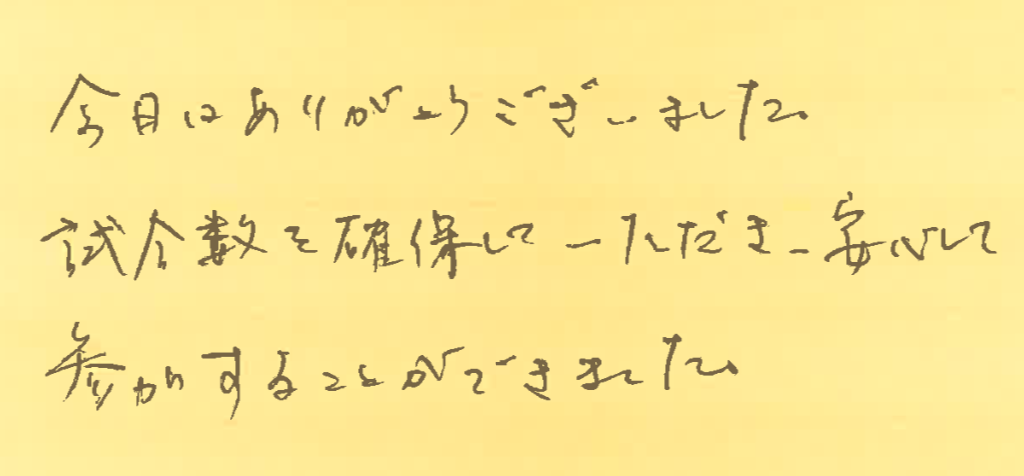 今日はありがとうございました。
試合数を確保していただき、安心して
参加することができました。